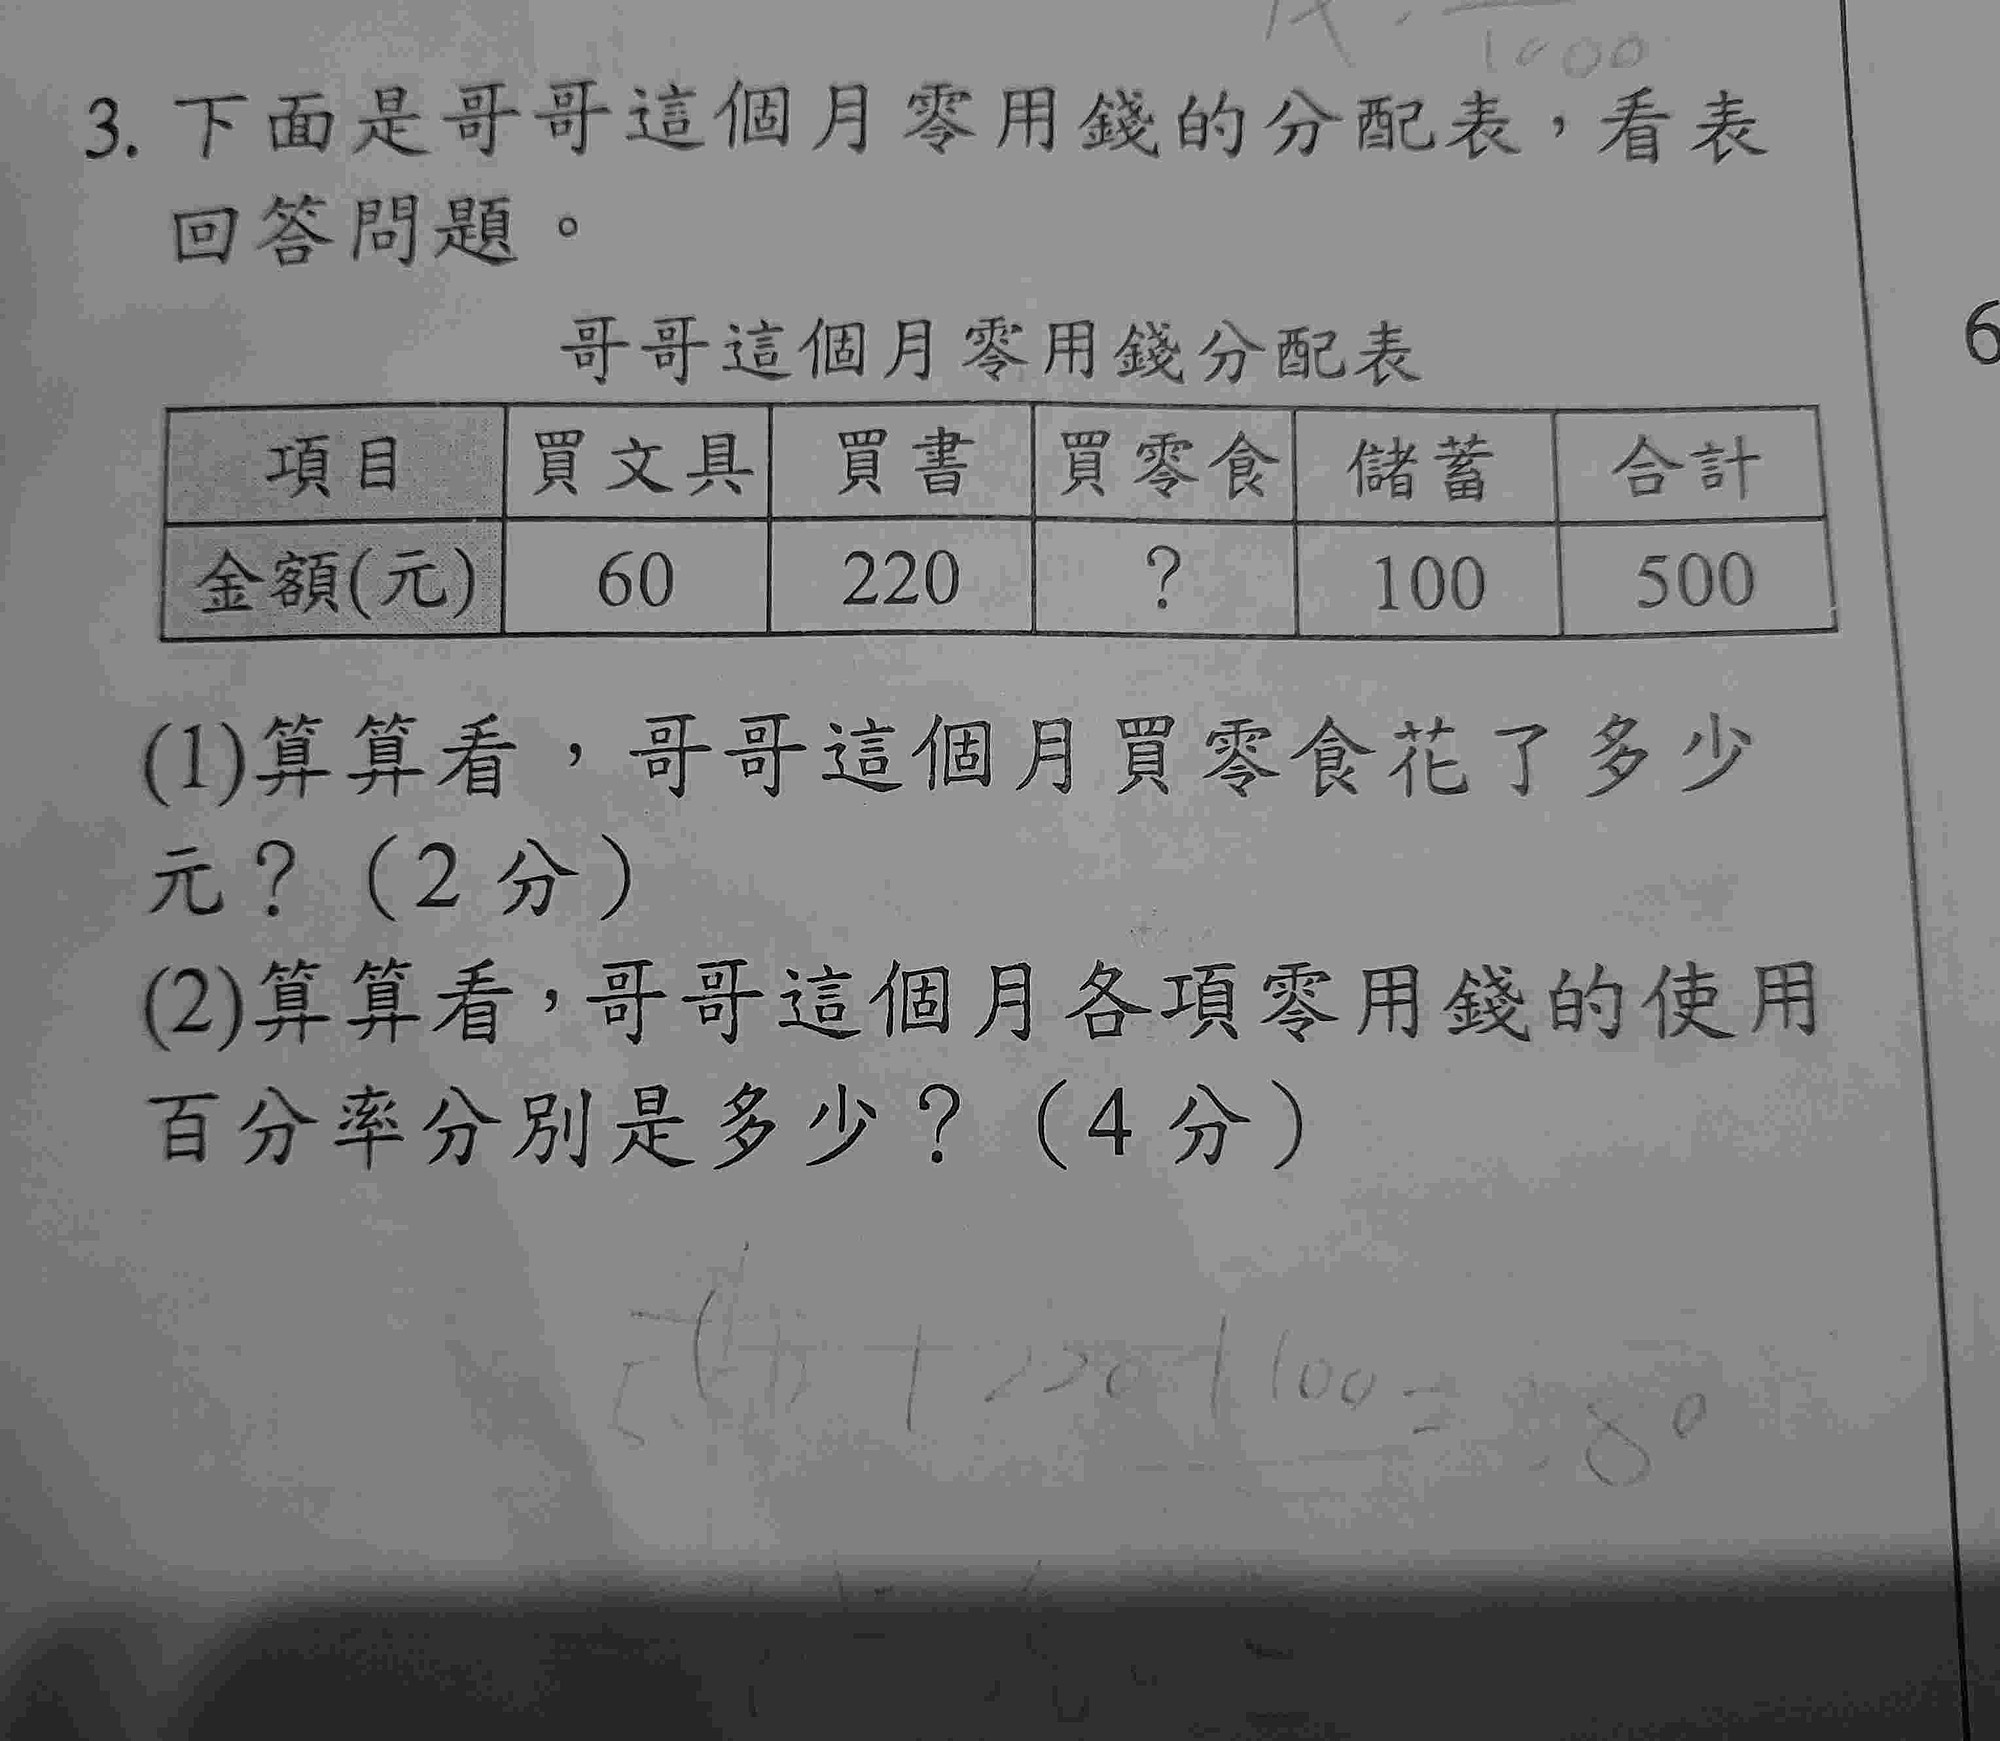 1000
3. 下面是哥哥這個月零用錢的分配表，看表
回答問題。
哥哥這個月零用錢分配表
項目 買文具 買書 買零食 儲蓄 合計
金額(元) 60 220 ? 100 500
(1)算算看，哥哥這個月買零食花了多少
元？（2 分）
(2)算算看，哥哥這個月各項零用錢的使用
百分率分別是多少？（4 分）
+ 220 + 100 = 80
6